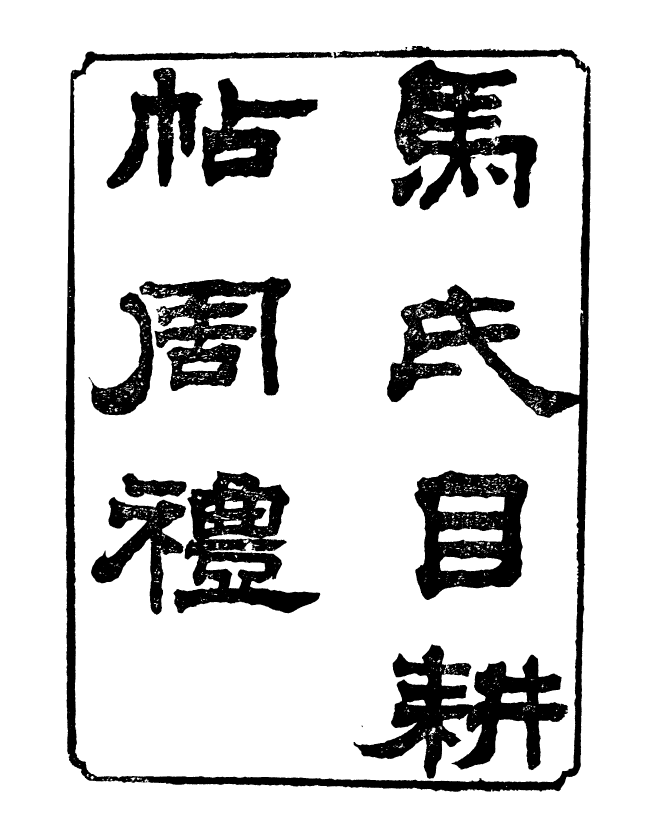 馬氏目耕
帖周禮